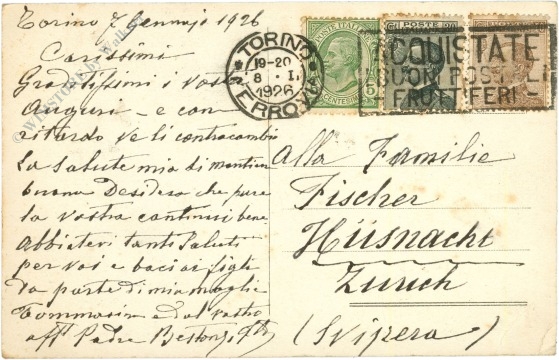 Torino 7 Gennajo 1926
Carissimi
Graditissimi i vostri
Auguri e con
ritardo ve li contracambio
la Salute mia di mantien
buona Desidero che pure
la vostra continui bene
abbiatevi tanti Saluti
per voi e baciai figli
da parte di mia moglie
Tommasina e dal vostro
aff Padre
TORINO
19-20
8 · I
1926
FERROVIA
POSTE ITALIANE
CENTESIMI 5
POSTE
ACQUISTATE
BUONI POSTALI
FRUTTIFERI
Alla Familie
Fischer
Hüsnacht
Zurich
(Svizera)